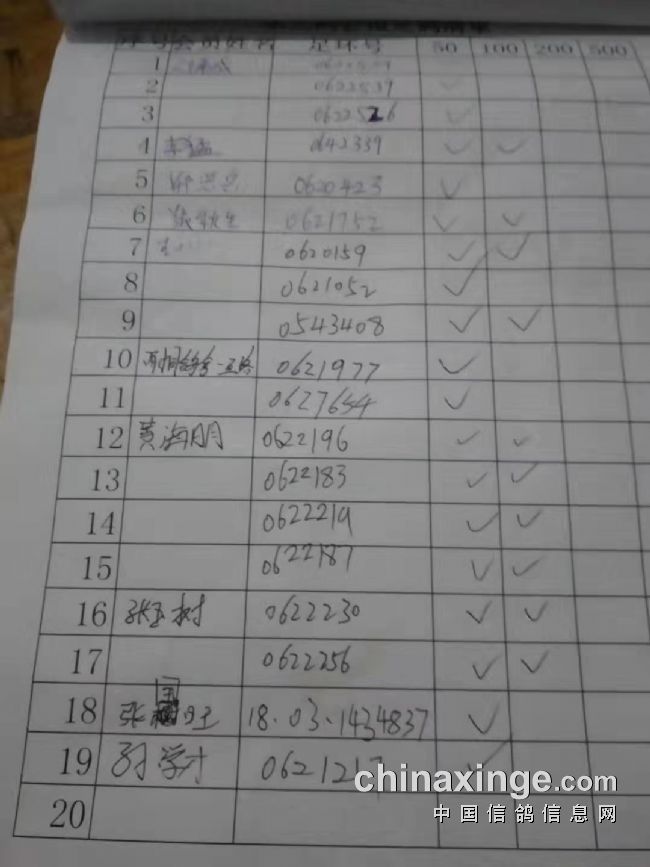 序号 会员姓名 足环号 50 100 200 500
1
2 0622539 ✓
3 0622526 ✓
4 0642339 ✓ ✓
5 0620423 ✓
6 0621752 ✓ ✓
7 0620159 ✓ ✓
8 0621052 ✓
9 0543408 ✓ ✓
10 0621977 ✓
11 0627654 ✓
12 黄海朋 0622196 ✓ ✓
13 0622183 ✓ ✓
14 0622219 ✓ ✓
15 0622187 ✓ ✓
16 张玉树 0622230 ✓ ✓
17 0622256 ✓ ✓
18 张 旺 18.03.1434837 ✓
19 孙学才 062121 ✓
20
chinaxinge.com
中国信鸽信息网